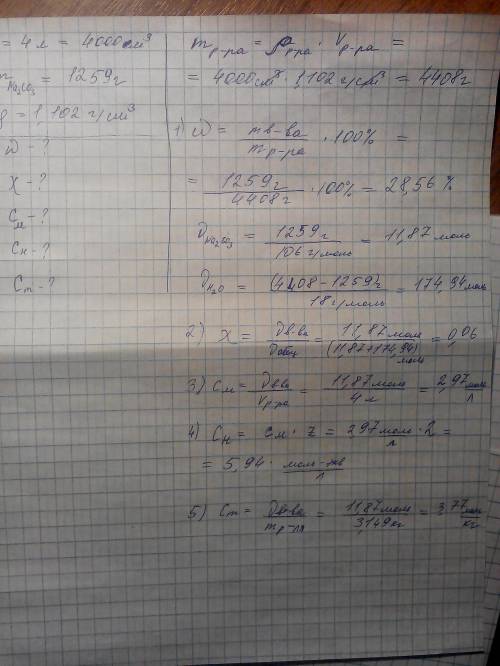 = 4 л = 4000 см³
m Na₂CO₃ = 1259 г
ρ = 1,102 г/см³
ω - ?
X - ?
Cм - ?
Cн - ?
Cm - ?
m р-ра = ρ р-ра · V р-ра =
= 4000 см³ · 1,102 г/см³ = 4408 г
1) ω = m в-ва / m р-ра · 100% =
= 1259 г / 4408 г · 100% = 28,56 %
ν Na₂CO₃ = 1259 г / 106 г/моль = 11,87 моль
ν H₂O = (4408 - 1259) г / 18 г/моль = 174,94 моль
2) X = ν в-ва / ν общ = 11,87 моль / (11,87 + 174,94) моль = 0,06
3) Cм = ν в-ва / V р-ра = 11,87 моль / 4 л = 2,97 моль/л
4) Cн = Cм · z = 2,97 моль/л · 2 =
= 5,94 · моль-экв/л
5) Cm = ν в-ва / m р-ля = 11,87 моль / 3,149 кг = 3,77 моль/кг